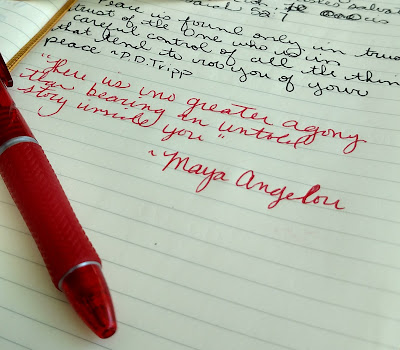 Peace is found only in
trust of the One who is in
careful control of all the
that tend to rob you of your
peace." P.D. Tripp
"There is no greater agony
than bearing an untold
story inside you"
~ Maya Angelou